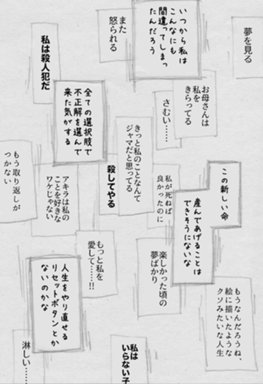 夢を見る
いつから私は
こんなにも
間違ってしまっ
たんだろう
また
怒られる
私は殺人犯だ
お母さんは
私を
きらってる
さむい……
全ての選択肢で
不正解を選んで
来た気がする
きっと私のことなんて
ジャマだと思ってる
殺してやる
この新しい命
産んであげることは
できそうにないな
私が死ねば
良かったのに
アキラは私の
ことを好きな
ワケじゃない
もう取り返しが
つかない
楽しかった頃の
夢ばかり
もっと私を
愛して……!!
人生をやり直せる
リセットボタンとか
ないのかな
もうなんだろうね、
絵に描いたような
クソみたいな人生
私は
いらない子
淋しい…